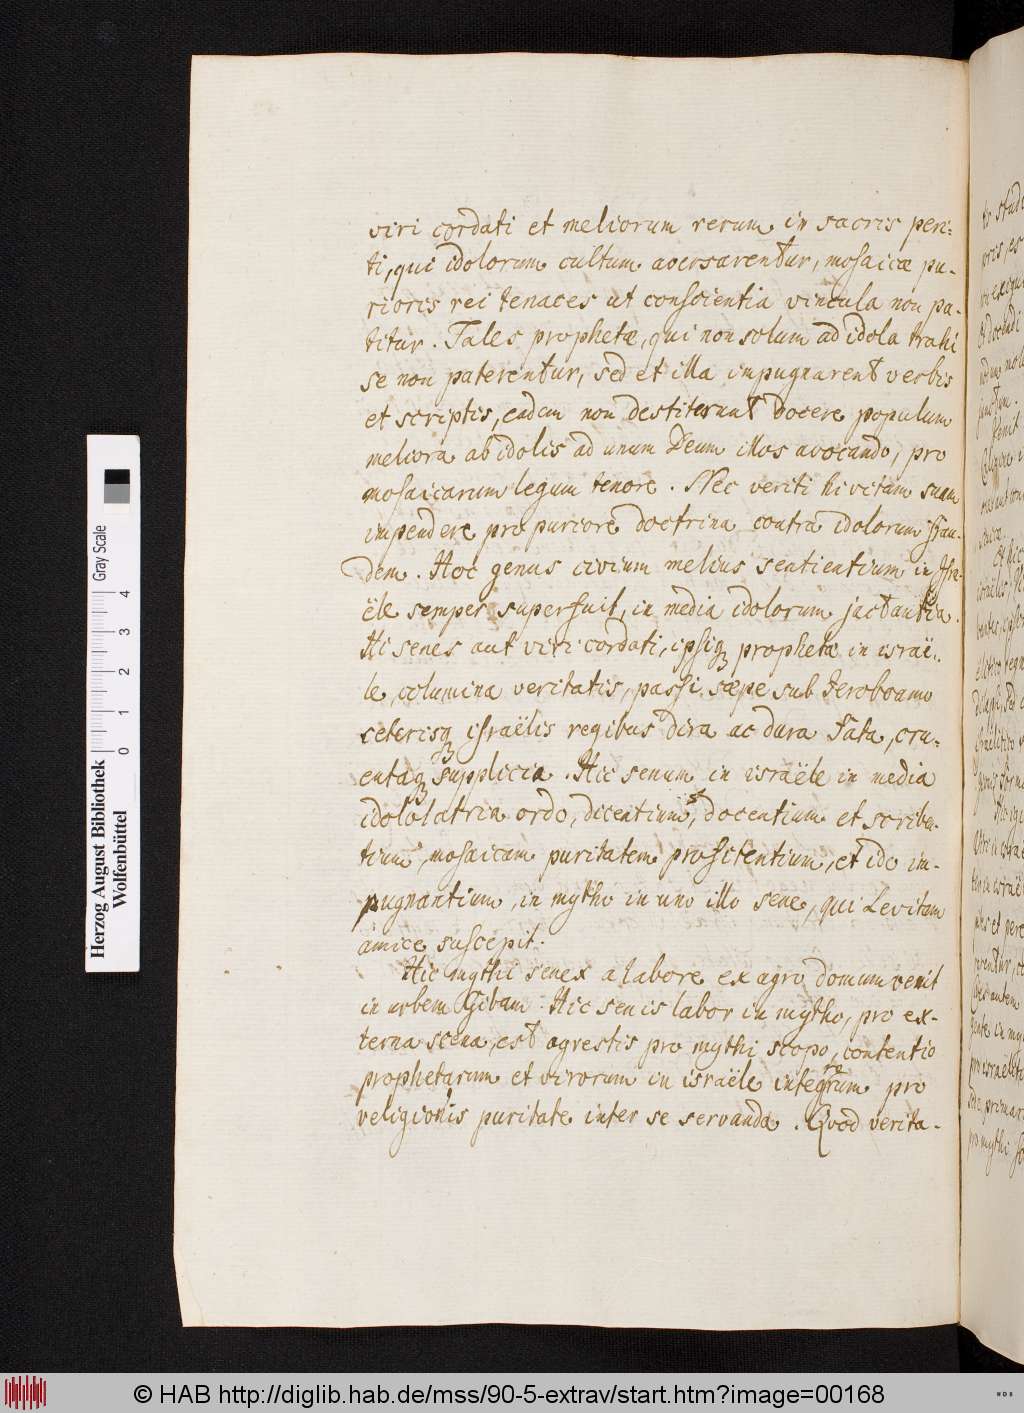 viri cordati et meliorum rerum in sacris peri-
ti, qui idolorum cultum aversarentur, mosaicæ pu-
rioris rei tenaces ut conscientia vincula non pa-
titur. Tales prophetæ, qui non solum ad idola trahi
se non paterentur, sed et illa impugnarent verbis
et scriptis, eadem non destiterunt docere populum
meliora ab idolis ad unum Deum illos avocando, pro
mosaicarum legum tenore. Nec veriti hi vitam suam
impendere pro puriore doctrina contra idolorum frau-
dem. Hoc genus civium melius sentientium in Isra-
ële semper superfuit, in media idolorum jactantia.
Hi senes aut viri cordati, ipsiq prophetæ in israë-
le, columina veritatis, passi sæpe sub Jeroboamo
ceterisq israëlis regibus dira ac dura fata, cru-
entaq supplicia. Hic senum in israële in media
idololatria ordo, dicentium, docentium et scriben-
tium, mosaicam puritatem profitentium, et ido im-
pugnantium, in mytho in uno illo sene, qui Levitam
amice suscepit.
Hic mythi senex a labore ex agro domum venit
in urbem Gibam. Hic senis labor in mytho, pro ex-
terna scena, est agrestis pro mythi scopo, contentio
prophetarum et virorum in israële integrorum pro
religionis puritate inter se servanda. Quod verita-
Gray Scale
0 1 2 3 4
Herzog August Bibliothek
Wolfenbüttel
© HAB http://diglib.hab.de/mss/90-5-extrav/start.htm?image=00168